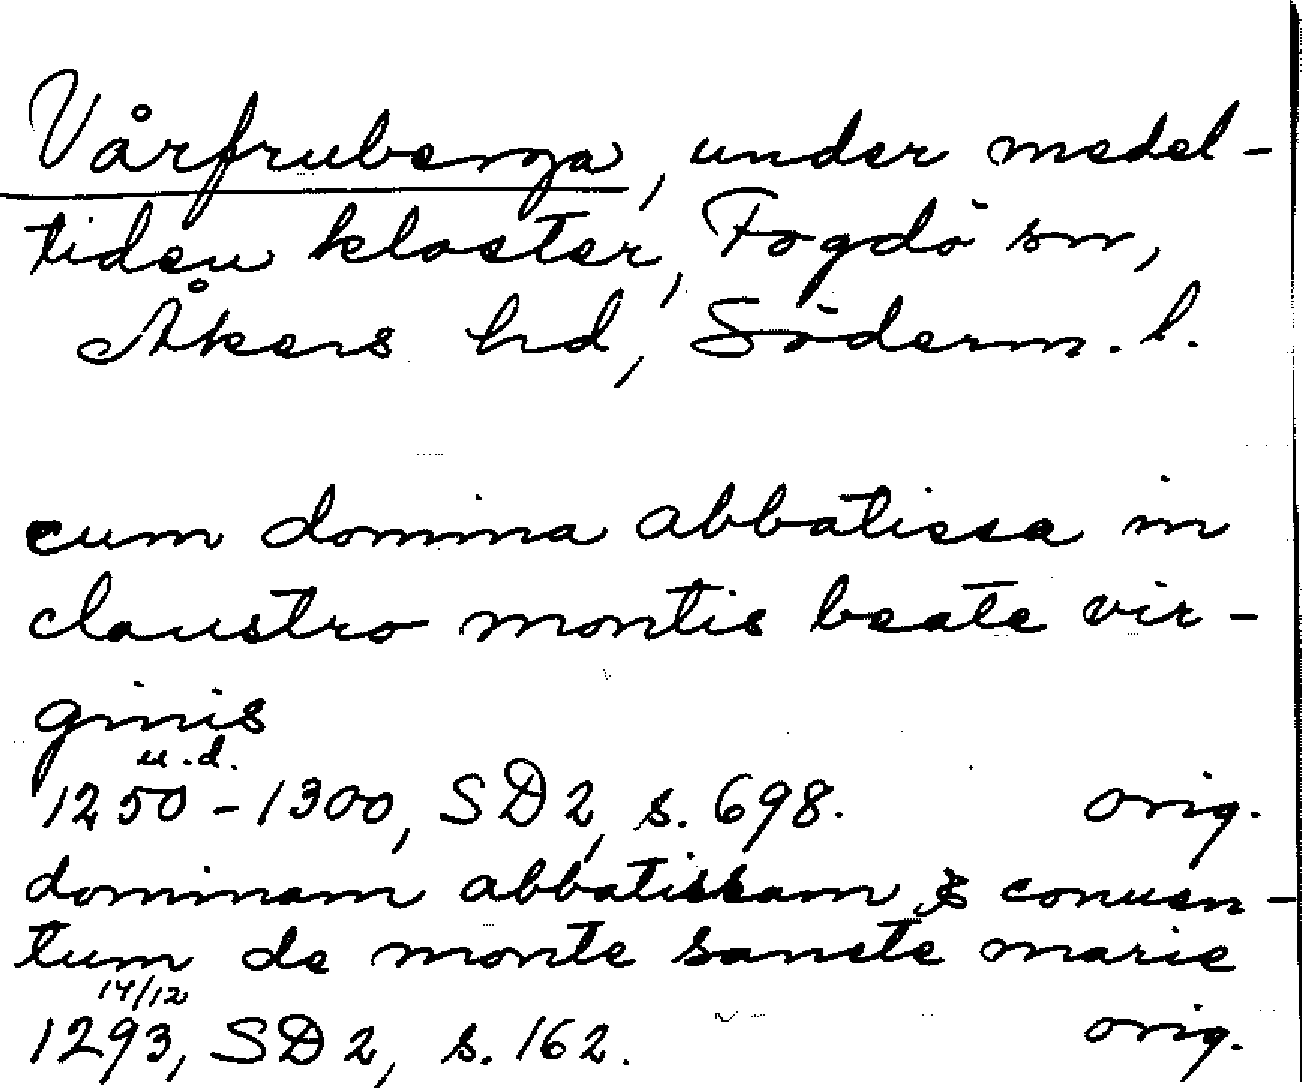 Vårfruberga, under medel-
tiden kloster, Fogdö sn,
Åkers hd, Söderm. l.
cum domina abbatissa in
claustro montis beate vir-
ginis
u.d.
1250-1300, SD 2, s. 698. orig.
dominam abbatissam & conuen-
tum de monte sancte marie
14/12
1293, SD 2, s. 162. orig.